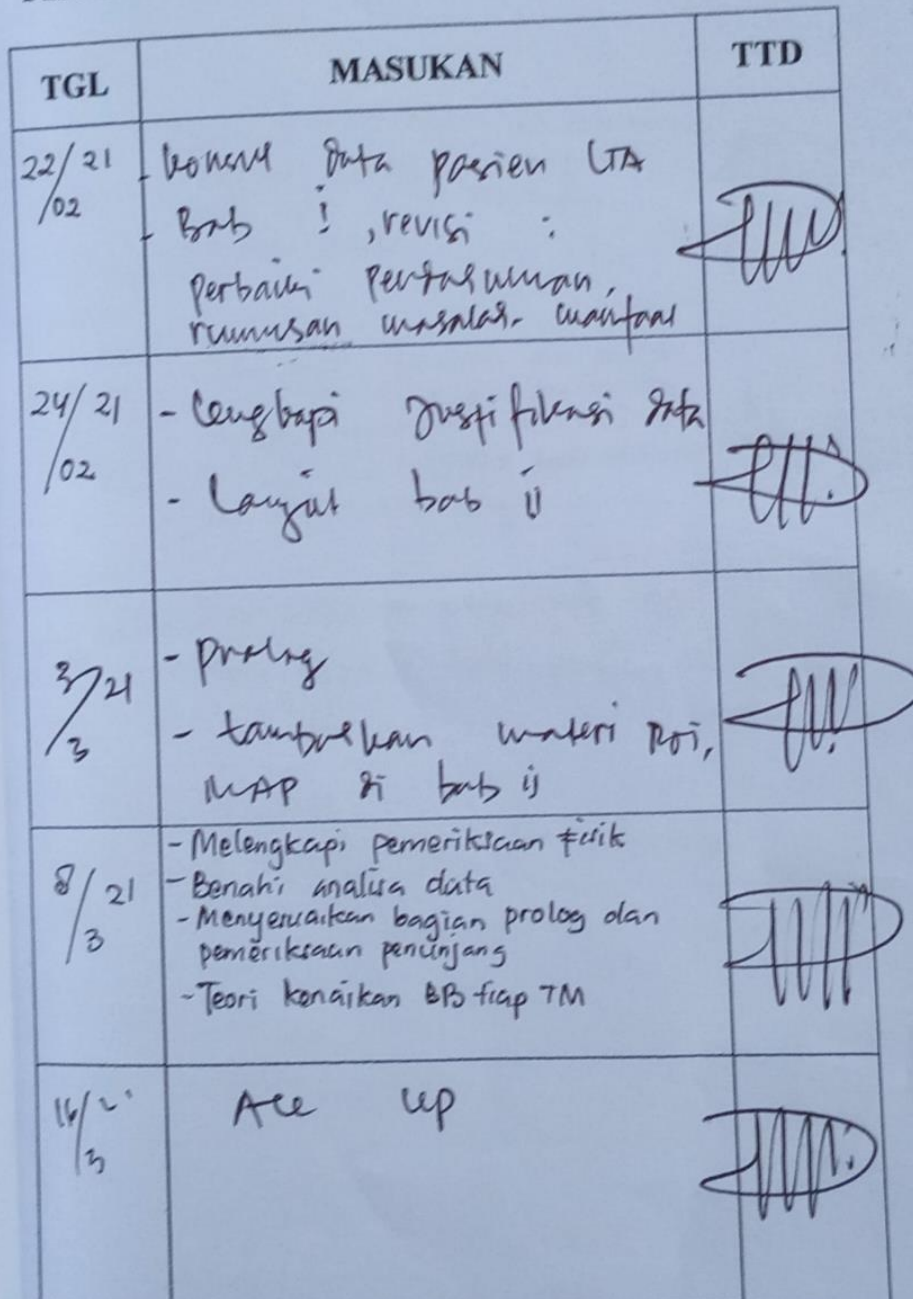 TGL MASUKAN TTD
22/21
/02
- konsul data pasien LTA
- Bab I, revisi :
perbaiki
rumusan masalah, manfaat
24/21
/02
- lengkapi justifikasi data
- Lanjut bab ii
3/21
/3
- prolog
- tambahkan materi ROT,
MAP di bab ii
8/21
/3
- Melengkapi pemeriksaan fisik
- Benahi analisa data
- Menyesuaikan bagian prolog dan
pemeriksaan penunjang
- Teori kenaikan BB tiap TM
16/21
/3
Acc up